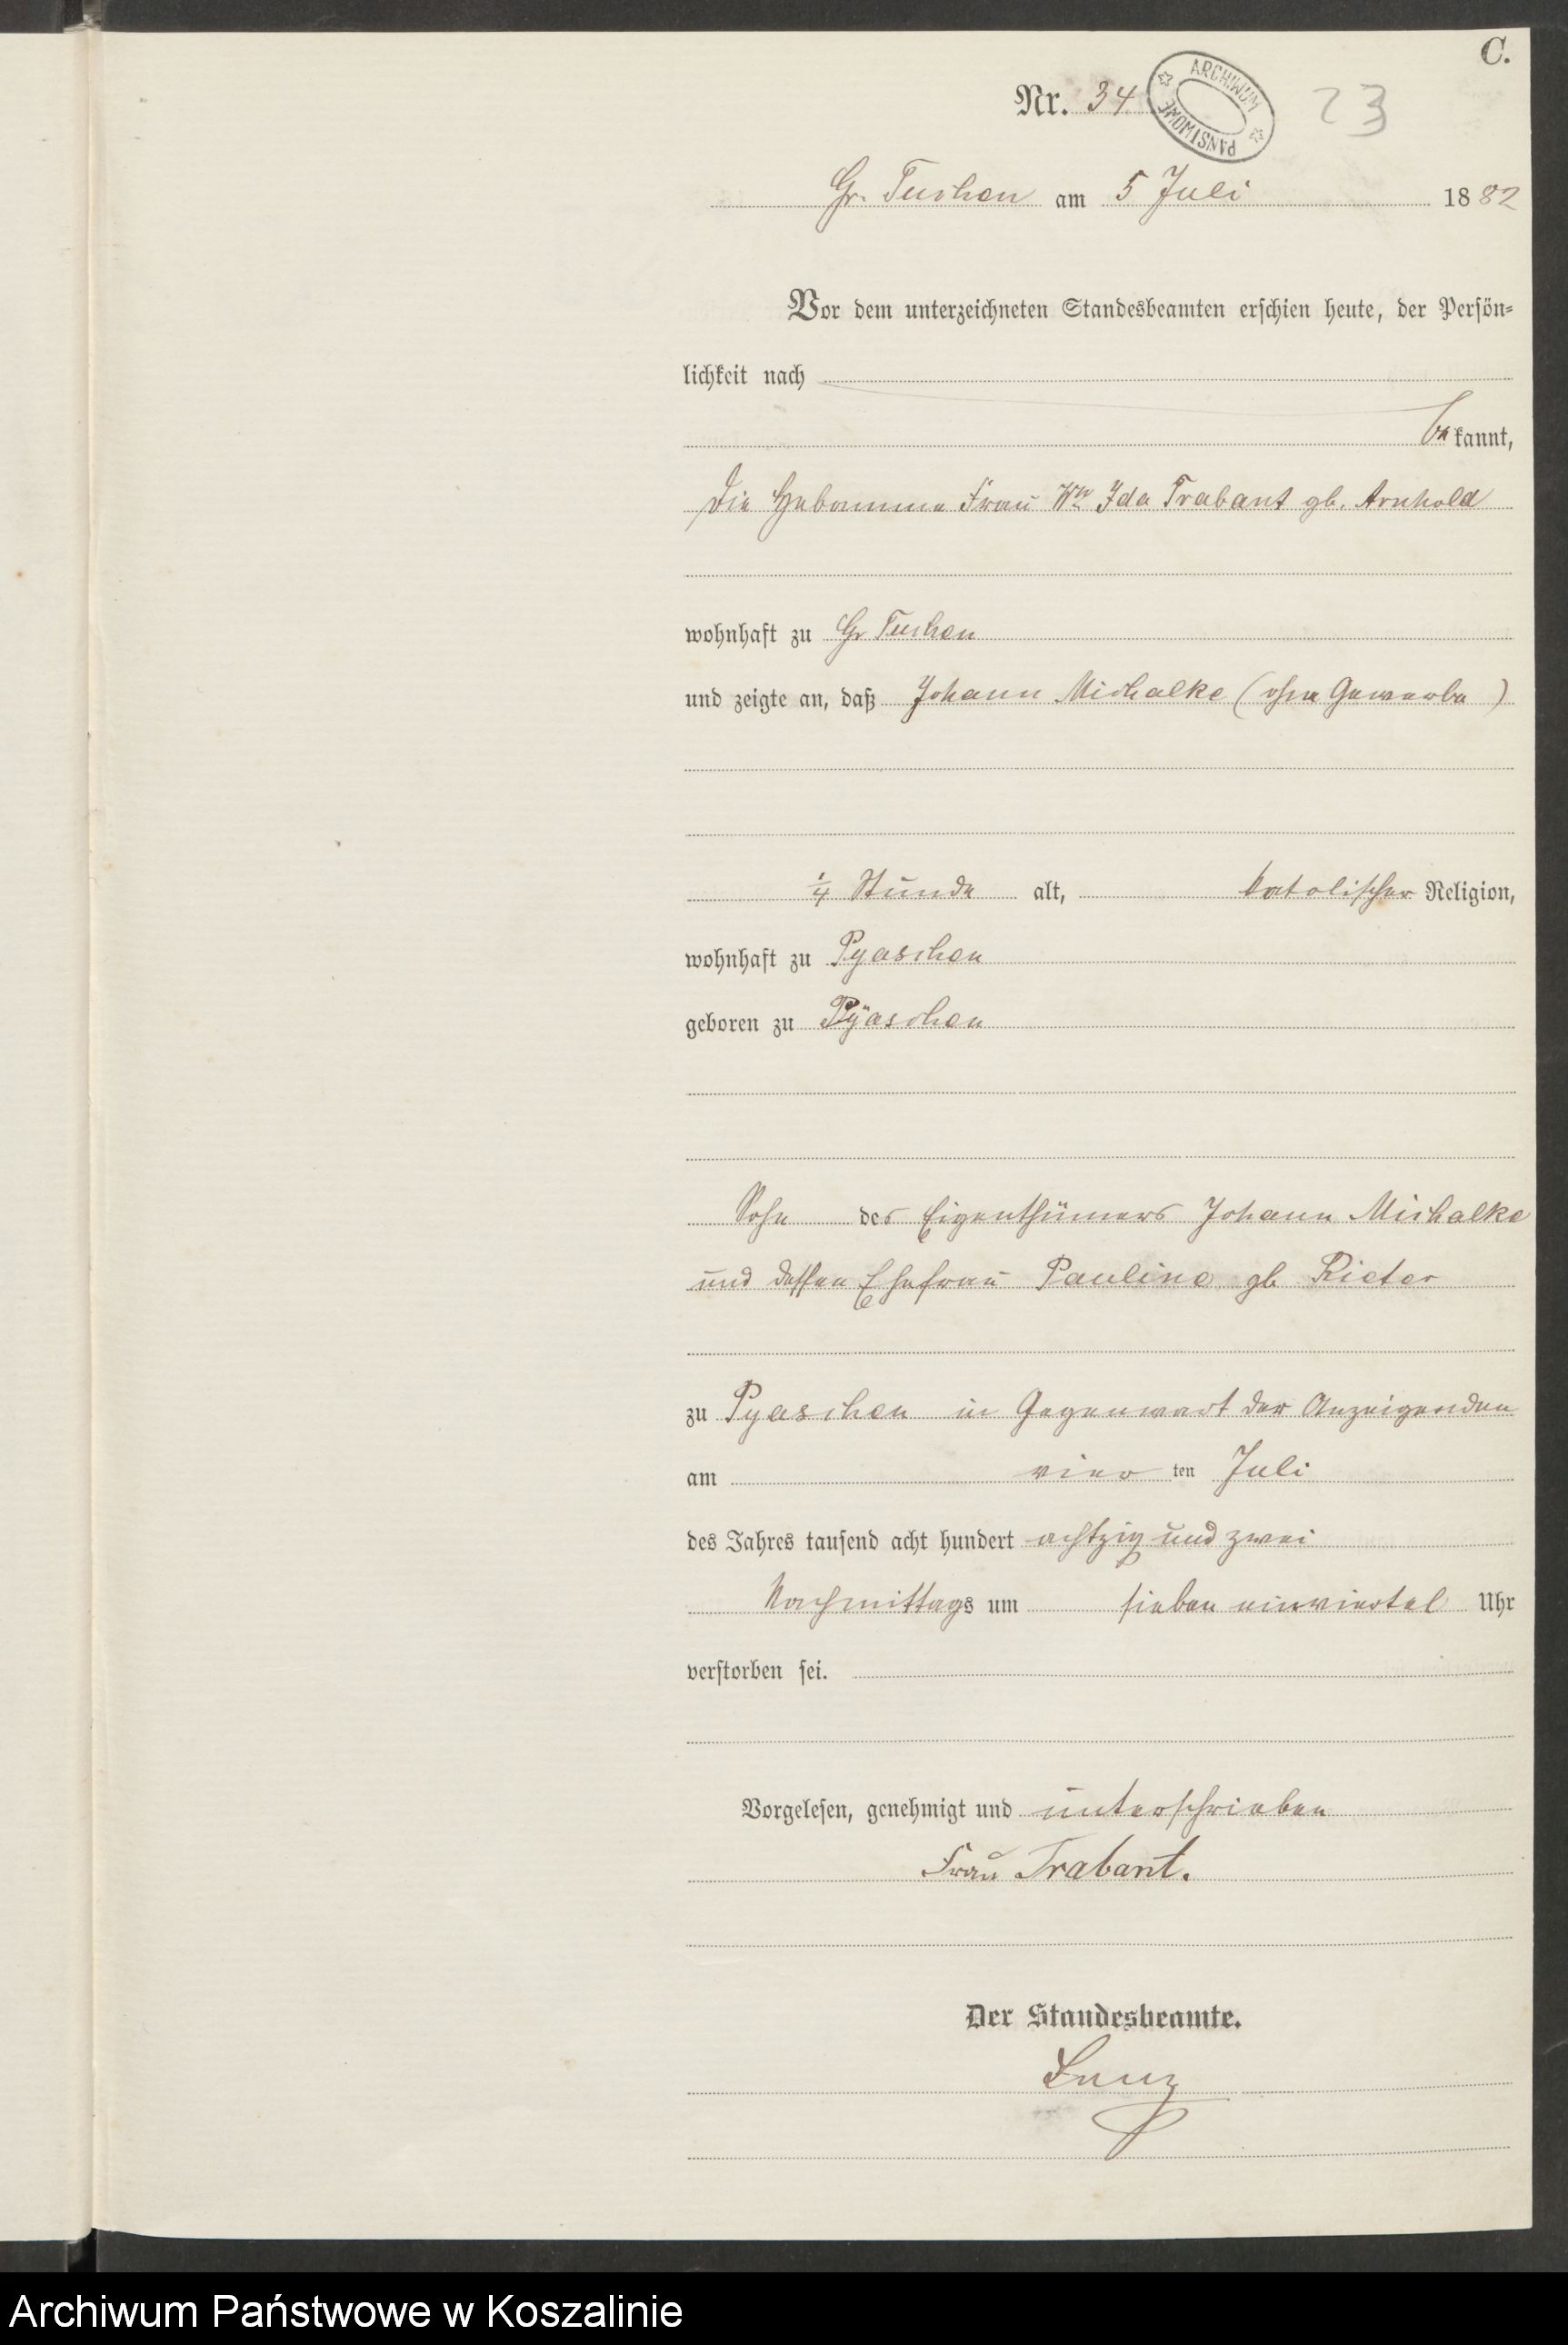 C.
Nr. 34
ARCHIWUM PAŃSTWOWE
23
Gr. Tuchen am 5 Juli 1882
Vor dem unterzeichneten Standesbeamten erschien heute, der Persön-
lichkeit nach
bekannt,
die Hebamme Frau Ww Ida Trabant gb. Arnhold
wohnhaft zu Gr Tuchen
und zeigte an, daß Johann Michalke (ohne Gewerbe)
1/4 Stunde alt, katolischer Religion,
wohnhaft zu Pyaschen
geboren zu Pÿaschen
Sohn des Eigenthümers Johann Michalke
und dessen Ehefrau Pauline gb Rieter
zu Pyaschen in Gegenwart der Anzeigenden
am vier ten Juli
des Jahres tausend acht hundert achtzig und zwei
Nachmittags um sieben einviertel Uhr
verstorben sei.
Vorgelesen, genehmigt und unterschrieben
Frau Trabant.
Der Standesbeamte.
Archiwum Państwowe w Koszalinie